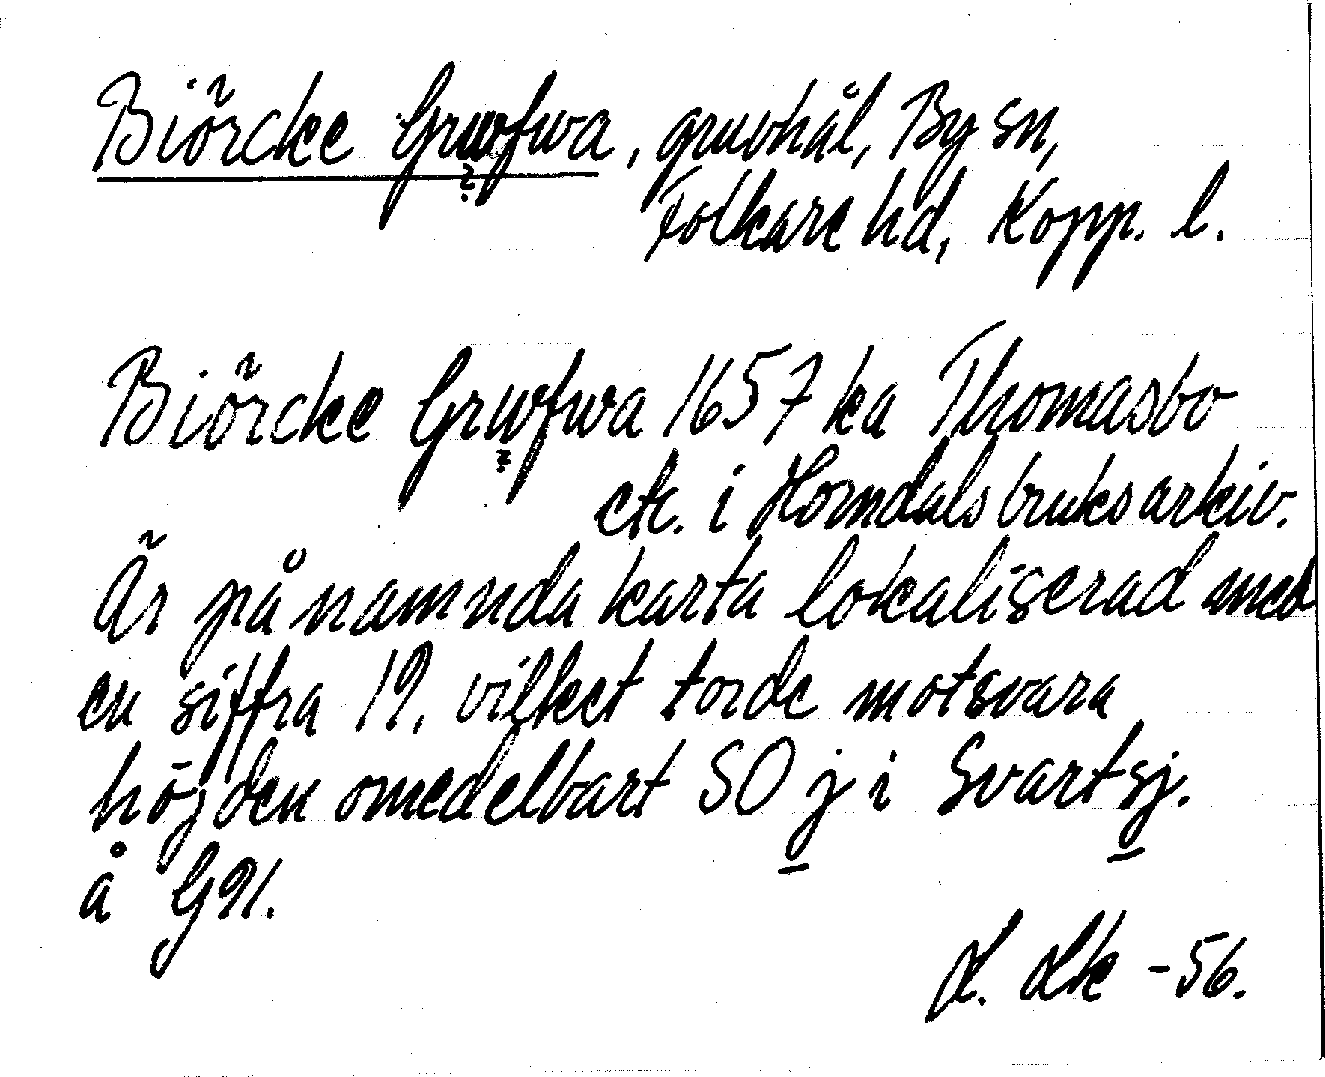 Biörcke Grufwa, gruvhål, By sn,
?
Folkare hd, Kopp. l.
Biörcke Grufwa 1657 ka Thomasbo
?
ek. i Horndals bruksarkiv.
Är på namnda karta lokaliserad med
en siffra 19, vilket torde motsvara
höjden omedelbart SO j i Svartsj.
å G91.
-56.